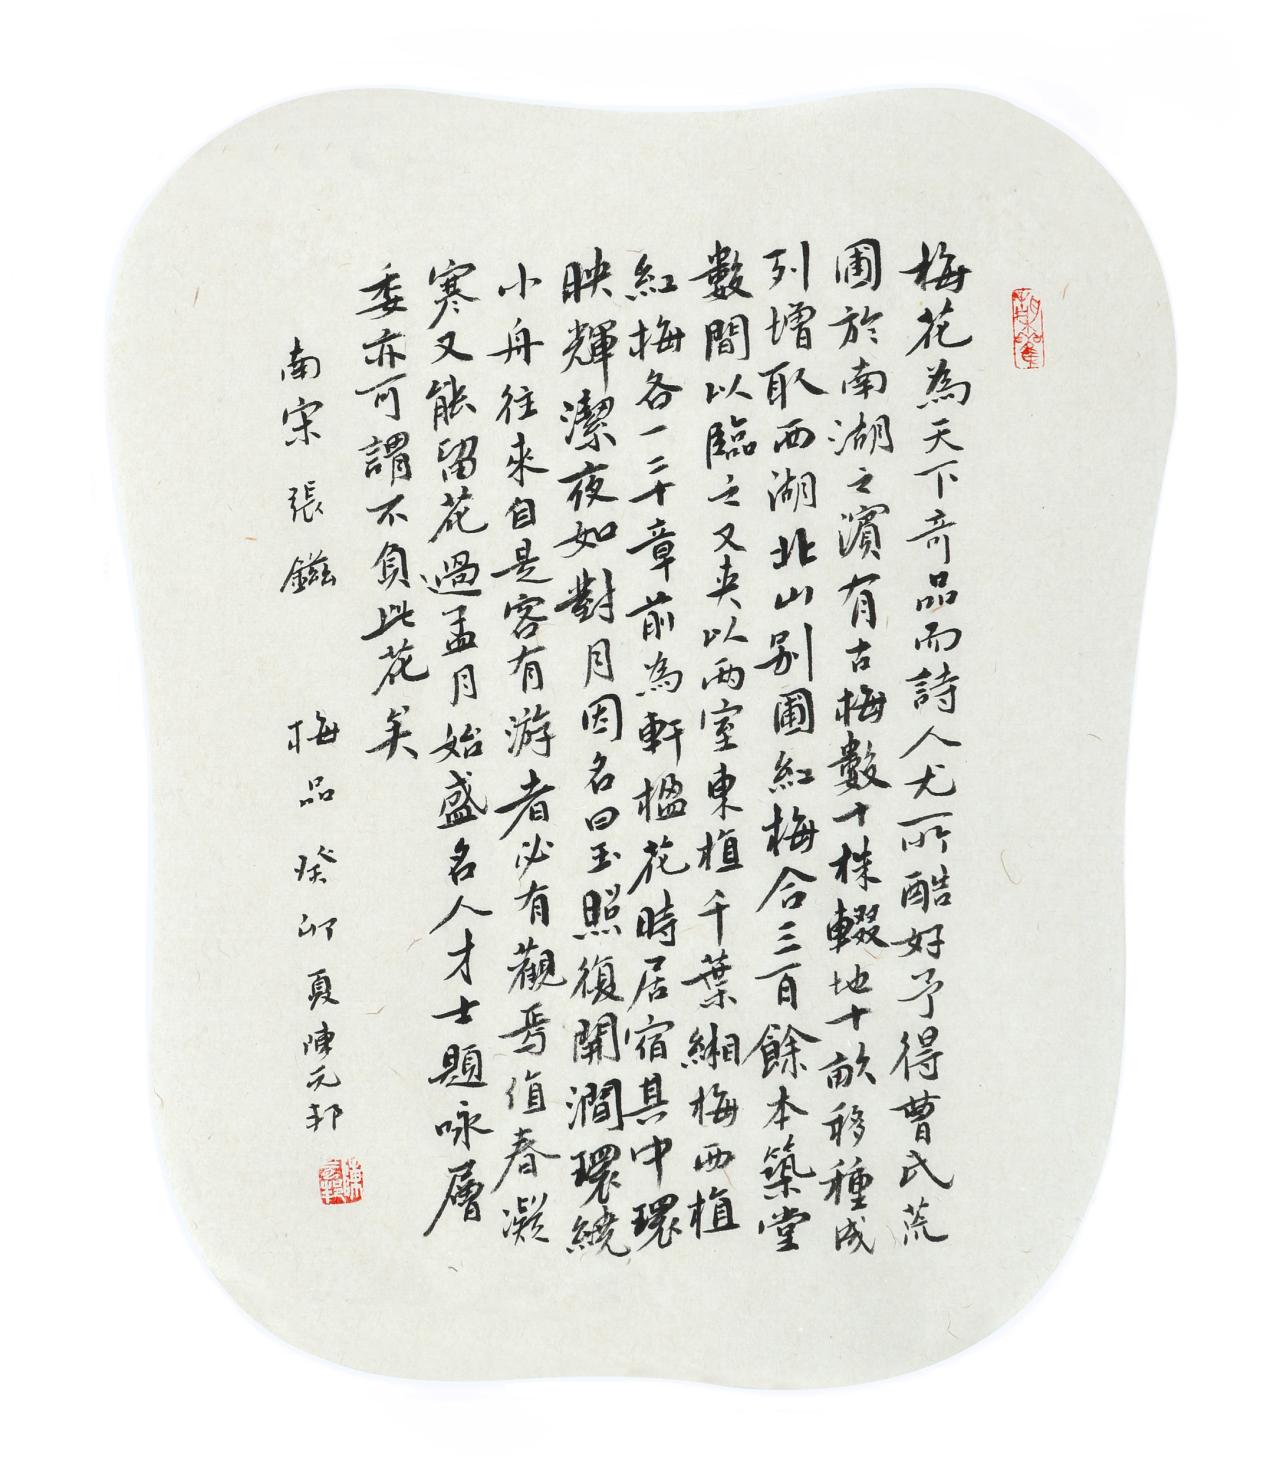 梅花為天下奇品而詩人尤所酷好予得曹氏荒
圃於南湖之濱有古梅數十株輟地十畝移種成
列增取西湖北山別圃紅梅合三百餘本築堂
數間以臨之又夾以兩室東植千葉緗梅西植
紅梅各一二十章前為軒楹花時居宿其中環
映輝潔夜如對月因名曰玉照復開澗環繞
小舟往來自是客有游者必有觀焉值春凝
寒又能留花過孟月始盛名人才士題咏層
委亦可謂不負此花矣
南宋張鎡 梅品 癸卯夏陳元邦